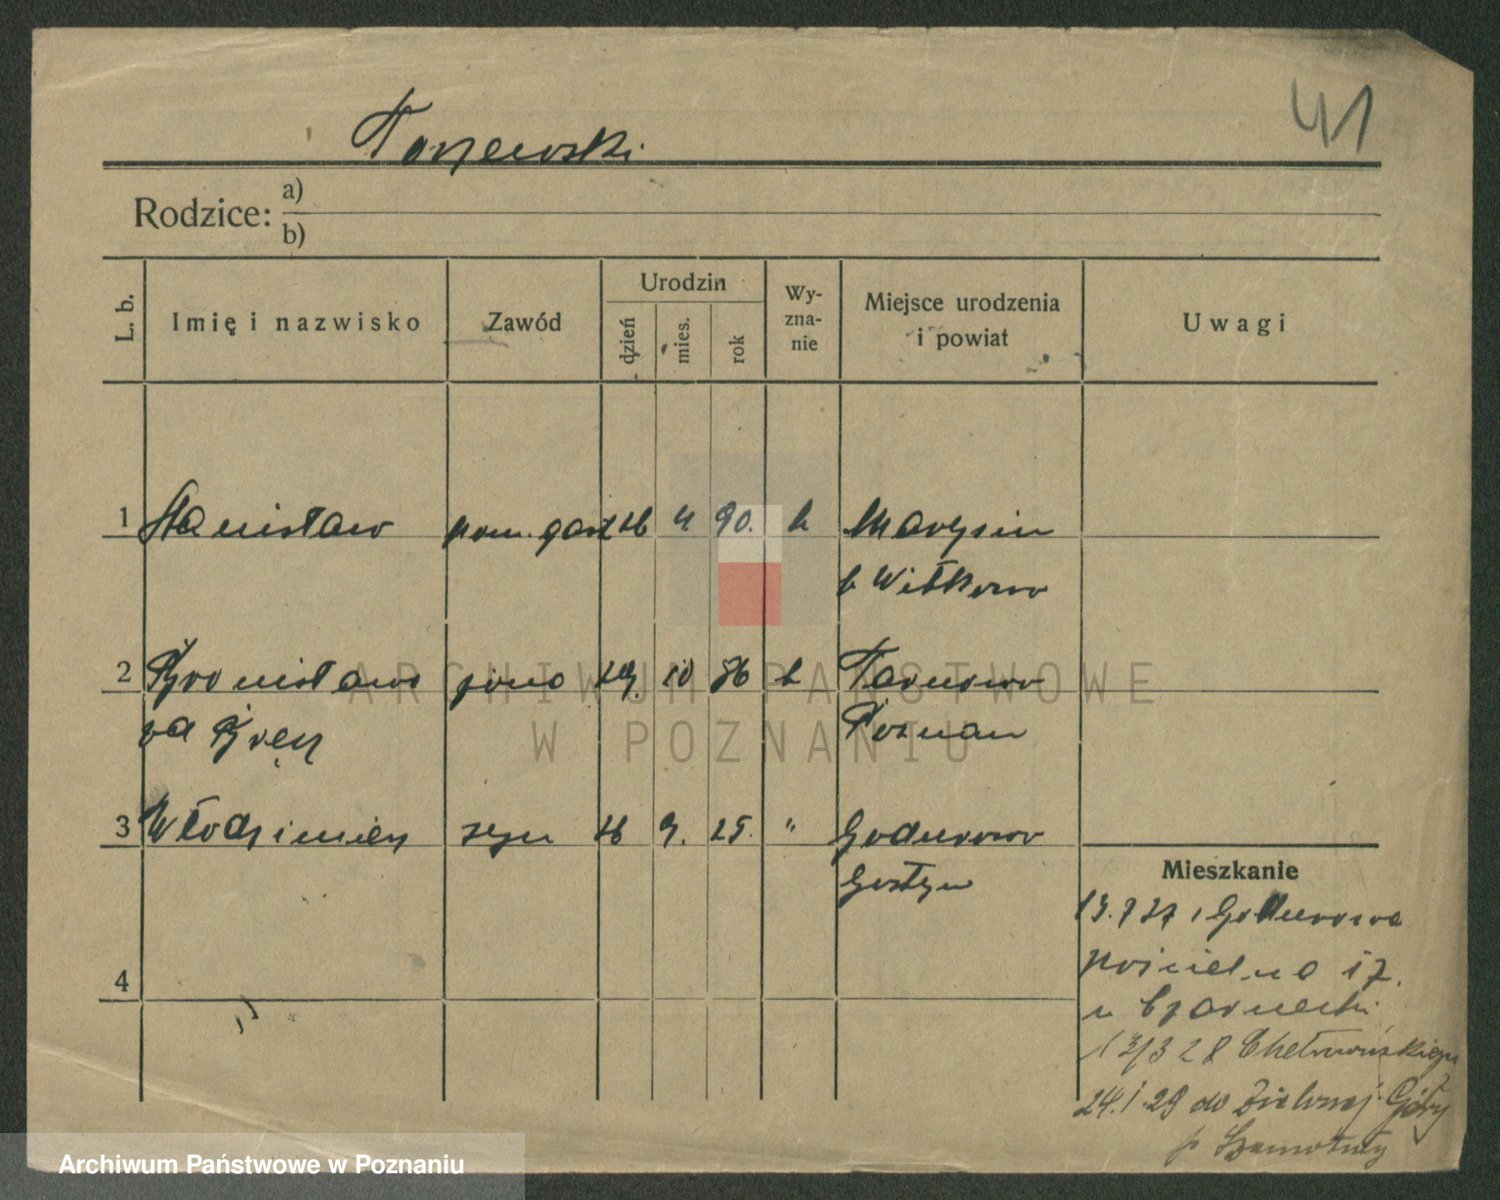 41
Torzewski
Rodzice: a)
b)
L. b. Imię i nazwisko Zawód Urodzin dzień mies. rok Wy-zna-nie Miejsce urodzenia i powiat Uwagi
1 Stanisław pom. gosp 4 90. k Marysin
p Witkowo
2 Bronisława żona 10 86 k Tarnowo
Poznań
3 Włodzimierz syn 9. 25. " Godurowo
Gostyń
Mieszkanie
z Godurowa
17.
u Czarnecki
13/3 28 Chełmońskiego
24.1.29 do Zielonej Góry
p Szamotuły
4
ARCHIWUM PAŃSTWOWE
W POZNANIU
Archiwum Państwowe w Poznaniu